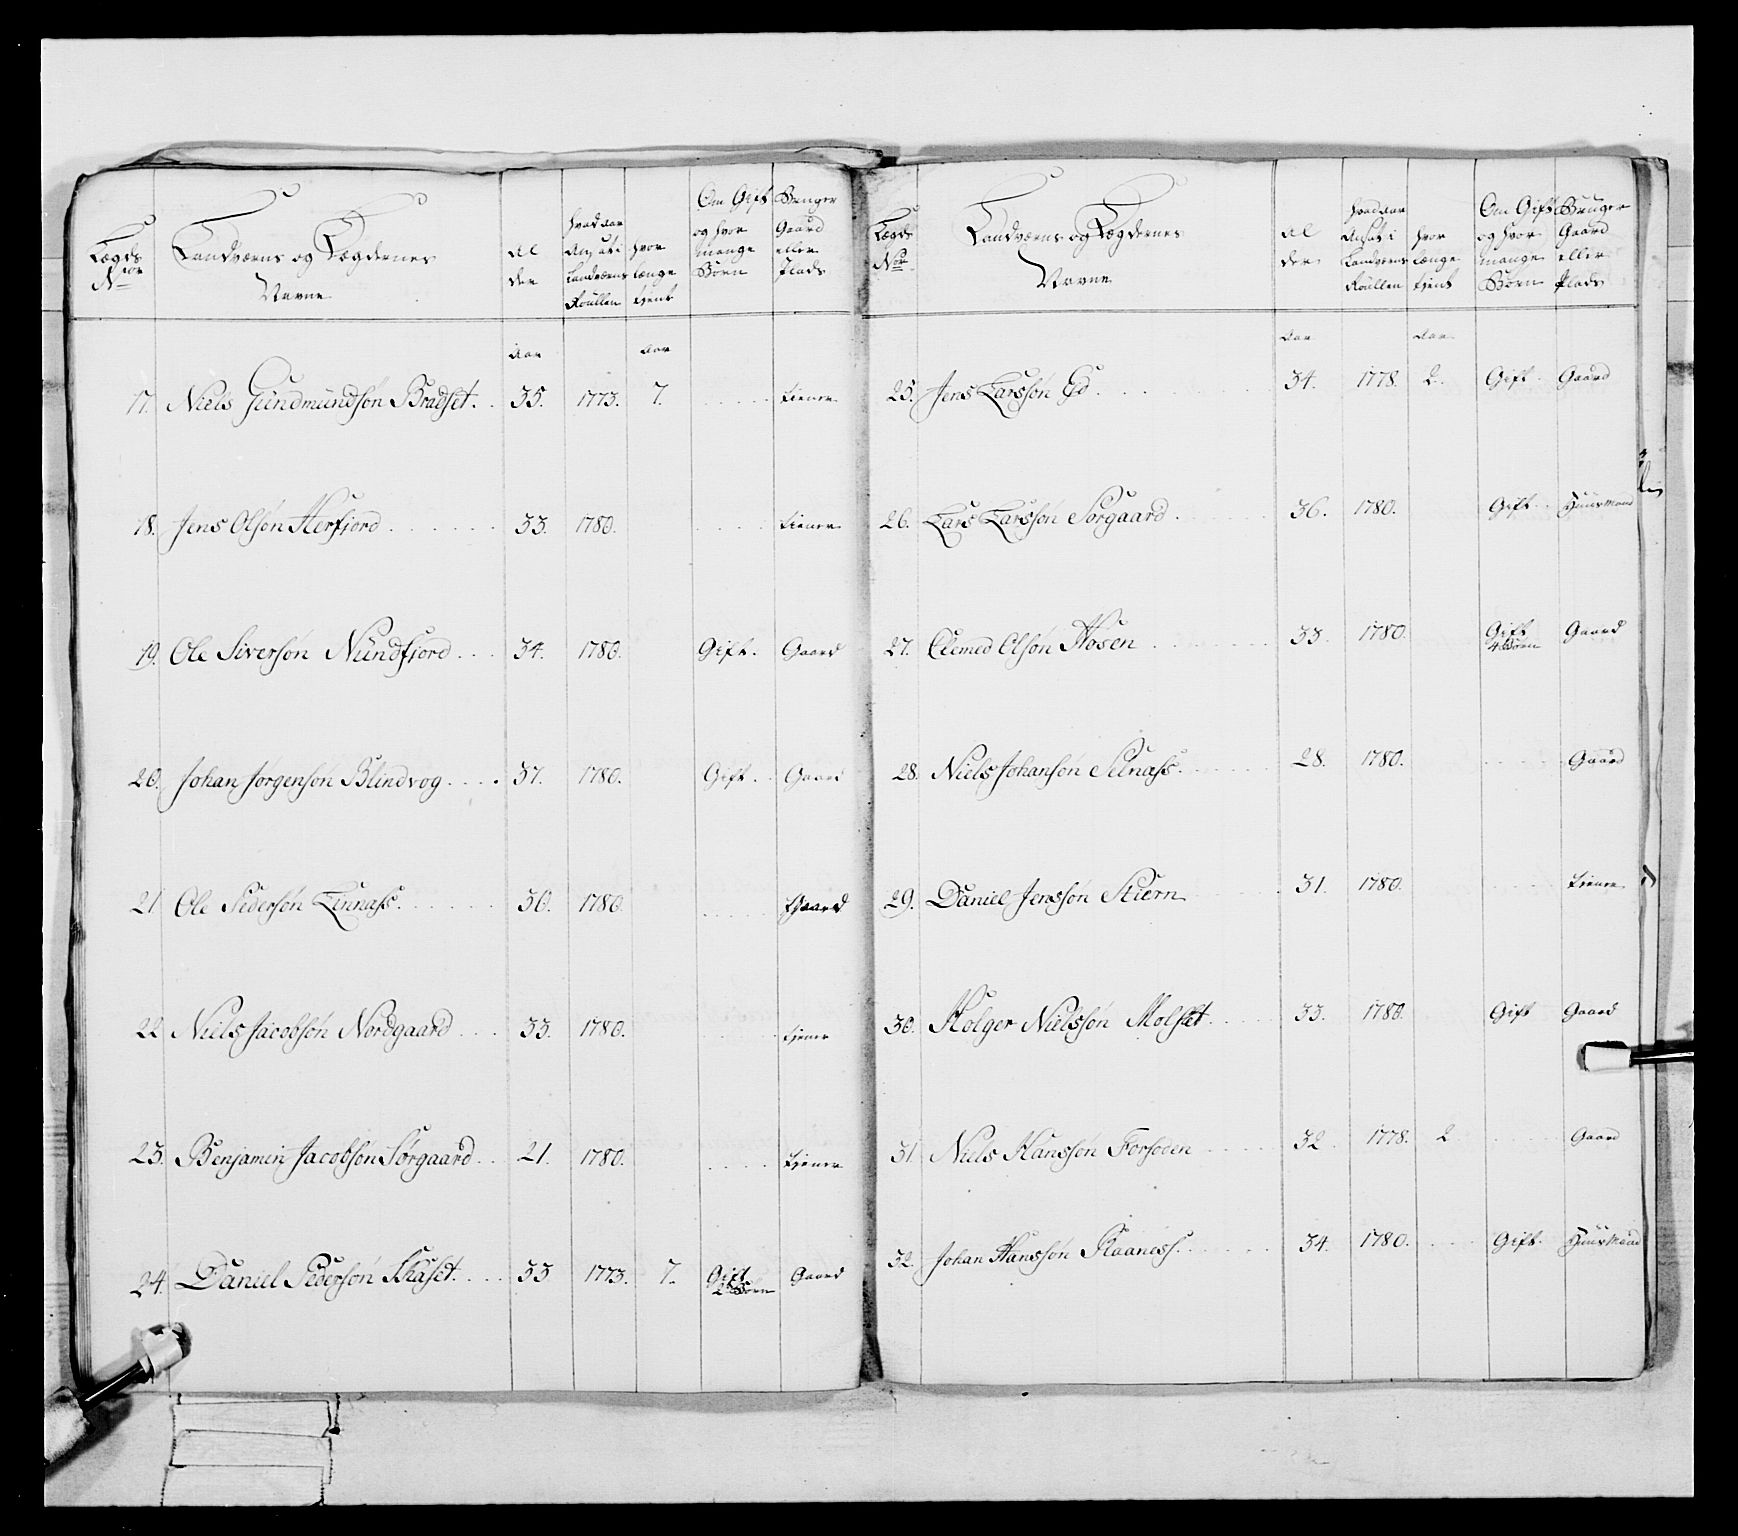 Lægds Nor
Landværns og Lægdernes Navne
Alder
Hvad aar Ansat i Landværns Roullen
hvor længe tient
Om Gift og hvor mange Børn
Bruger Gaard eller Plads
Aar Aar
17. Niels Gundmundsøn Bradset. 35. 1773. 7. tiener
18. Jens Olsøn Herfjord 33. 1780. tiener
19. Ole Siversøn Nundfjord 34. 1780. Gift. Gaard
20. Johan Jørgensøn Blindvog 37. 1780. Gift. Gaard
21. Ole Pedersøn Linnass. 30. 1780. Gaard
22. Niels Jacobsøn Nordgaard 33. 1780. tiener
23. Benjamin Jacobsøn Sørgaard 21. 1780. tiener
24. Daniel Pedersøn Skaset. 33 1773. 7. Gift 2 Børn Gaard
Lægds Nor
Landværns og Lægdernes Navne
Alder
Hvad aar Ansat i Landværns Roullen
hvor længe tient
Om Gift og hvor mange Børn
Bruger Gaard eller Plads
Aar Aar
25. Jens Larssøn Eid 34. 1778. 2. Gift. Gaard
26. Lars Larssøn Sørgaard 36. 1780. Gift. Huusmand
27. Clemed Olsøn Hosen 33. 1780. Gift 4 Børn Gaard
28. Niels Johansøn Selnass. 28. 1780. Gaard
29. Daniel Jenssøn Stiern 31. 1780. tiener
30. Holger Nielssøn Molset 33. 1780. Gift Gaard
31. Niels Hanssøn Forsoden 32. 1778. 2 Gaard
32. Johan Hanssøn Raaness. 34. 1780. Gift. Huusmand